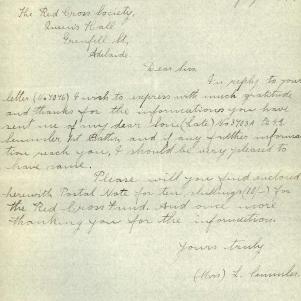 The Red Cross Society,
Queen's Hall
Grenfell St,
Adelaide
Dear Sir
In reply to your
letter (No 4046) I wish to express with much gratitude
and thanks for the informations you have
sent me of my dear Son (Late) No 3703A
Battn, and if any further informa
tion reach you, I should be very pleased to
have same.
Please will you find enclosed
herewith Postal Note for ten shillings (10/-) for
the Red Cross Fund. And once more
thanking you for the information.
Yours truly
(Mrs) L.